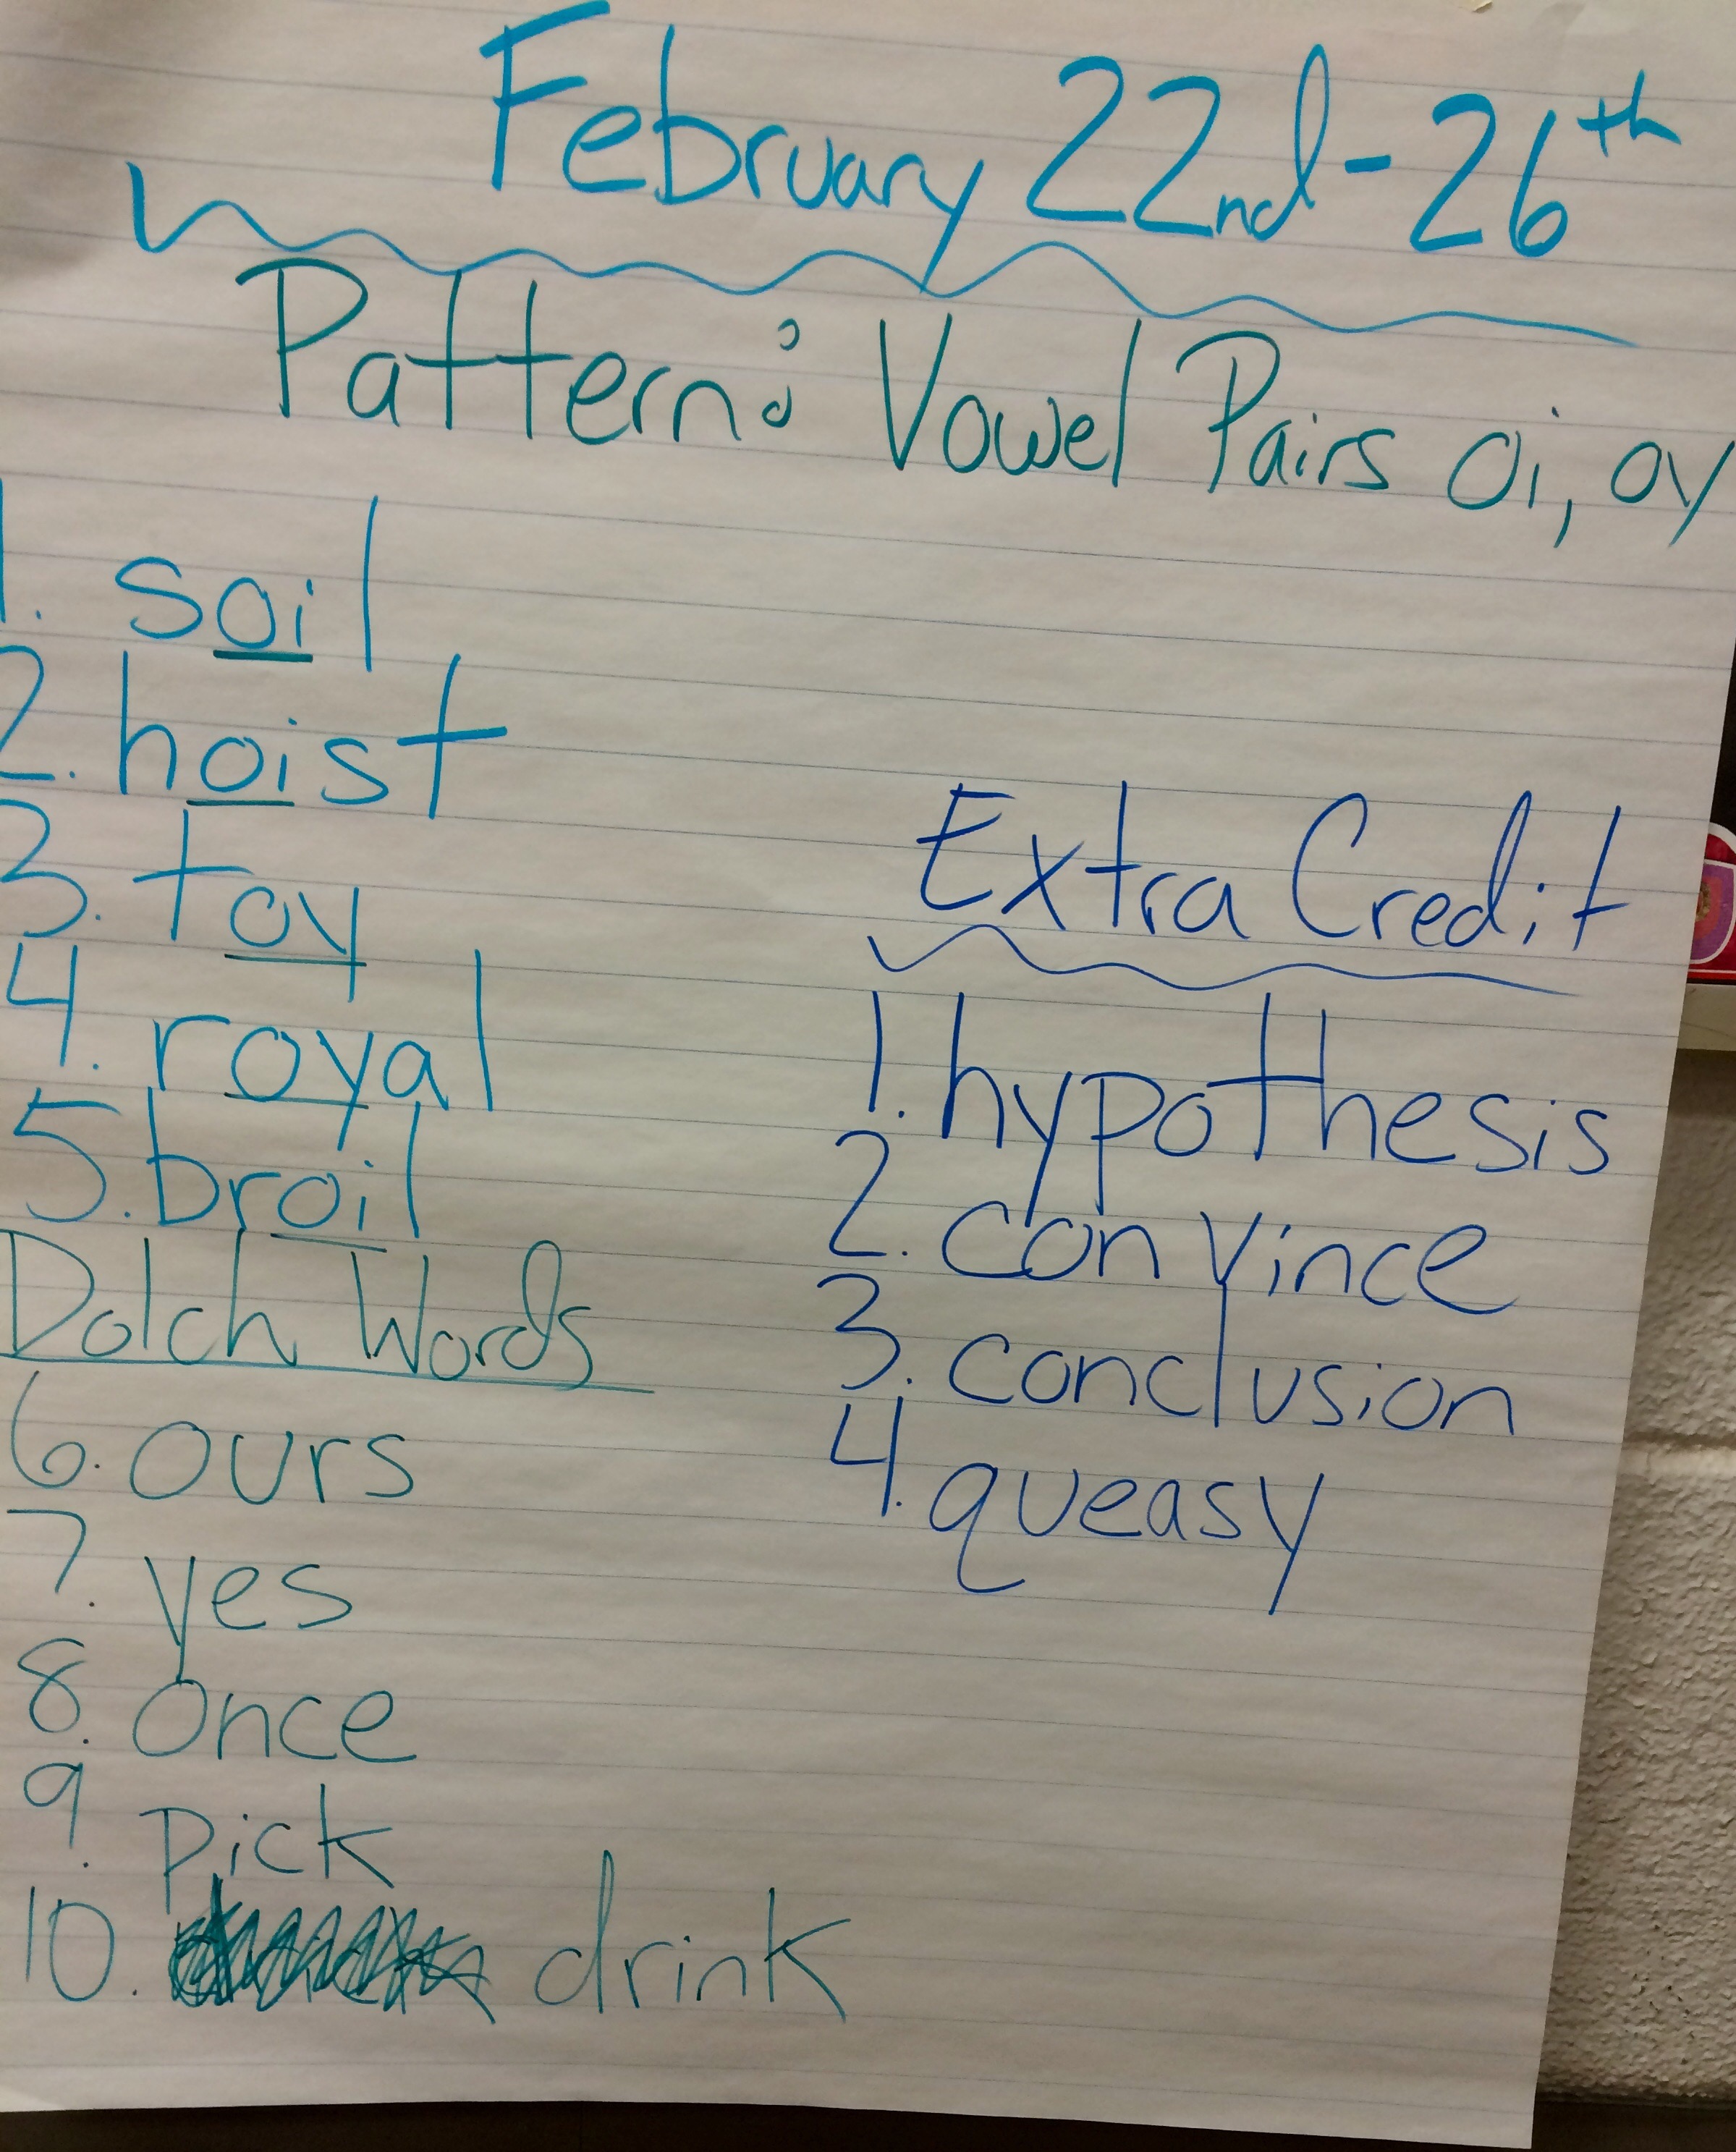 February 22nd-26th
Pattern: Vowel Pairs oi, oy
1. soil
2. hoist
3. toy
4. royal
5. broil
Dolch Words
6. ours
7. yes
8. once
9. pick
10. drink
Extra Credit
1. hypothesis
2. convince
3. conclusion
4. queasy